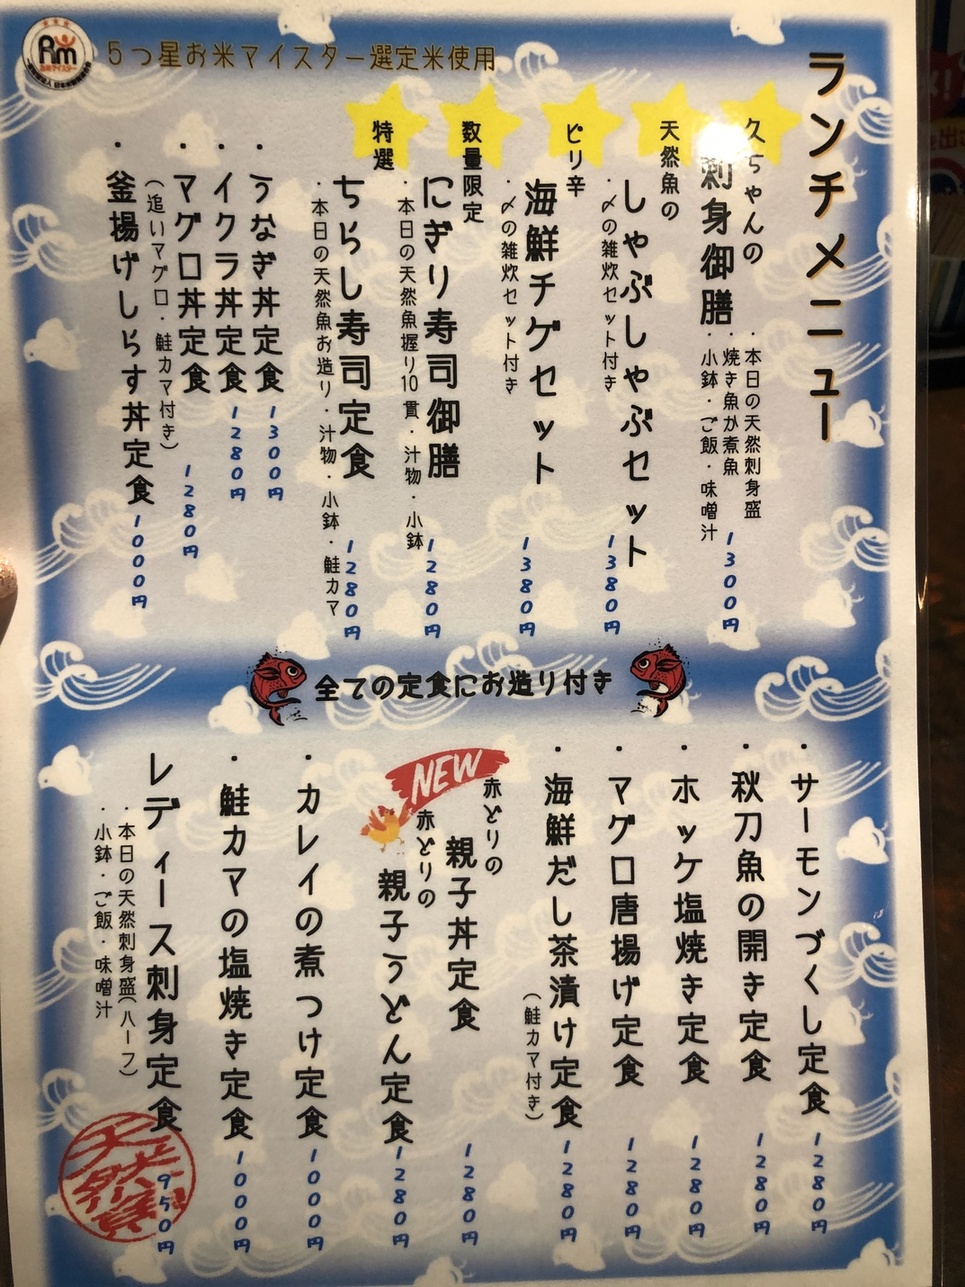 ランチメニュー
5つ星お米マイスター選定米使用
久ちゃんの
刺身御膳
・本日の天然刺身盛
・焼き魚か煮魚
・小鉢・ご飯・味噌汁
1300円
天然魚の
しゃぶしゃぶセット
・〆の雑炊セット付き
1380円
ピリ辛
海鮮チゲセット
・〆の雑炊セット付き
1380円
数量限定
にぎり寿司御膳
・本日の天然魚握り10貫・汁物・小鉢
1280円
特選
ちらし寿司定食
・本日の天然魚お造り・汁物・小鉢・鮭カマ
1280円
・うなぎ丼定食 1300円
・イクラ丼定食 1280円
・マグロ丼定食 1280円
(追いマグロ・鮭カマ付き)
・釜揚げしらす丼定食 1000円
全ての定食にお造り付き
・サーモンづくし定食 1280円
・秋刀魚の開き定食 1280円
・ホッケ塩焼き定食 1280円
・マグロ唐揚げ定食 1280円
・海鮮だし茶漬け定食 1280円
(鮭カマ付き)
NEW
赤どりの
親子丼定食 1280円
赤どりの
親子うどん定食 1280円
・カレイの煮つけ定食 1000円
・鮭カマの塩焼き定食 1000円
レディース刺身定食 950円
・本日の天然刺身盛(ハーフ)
・小鉢・ご飯・味噌汁